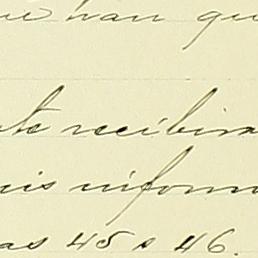 ue han qu
te recibira
uis inform
as 45 a 46.